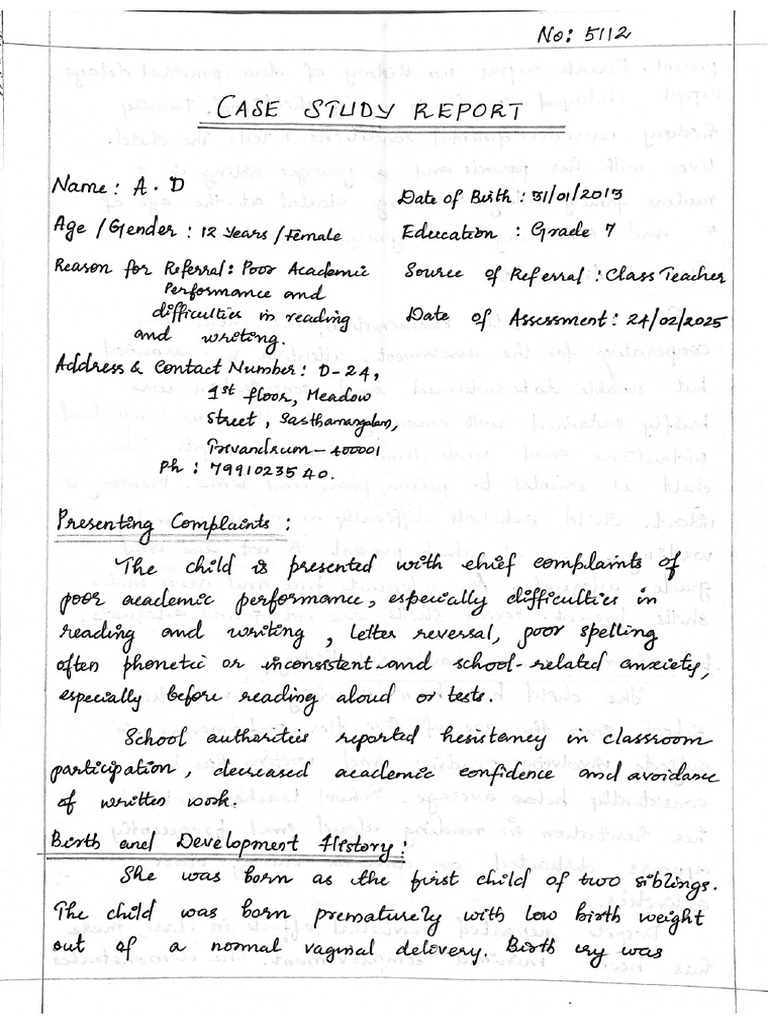 No: 5112
CASE STUDY REPORT
Name : A. D
Date of Birth : 31/01/2013
Age / Gender : 12 years / Female
Education : Grade 7
Reason for Referral : Poor Academic
Performance and
difficulties in reading
and writing.
Source of Referral : Class Teacher
Date of Assessment : 24/02/2025
Address & Contact Number : D-24,
1st floor, Meadow
Street, Sasthamangalam,
Trivandrum - 400001
Ph : 7991023540.
Presenting Complaints :
The child is presented with chief complaints of
poor academic performance, especially difficulties in
reading and writing, letter reversal, poor spelling
often phonetic or inconsistent and school-related anxiety,
especially before reading aloud or tests.
School authorities reported hesistency in classroom
participation, decreased academic confidence and avoidance
of written work.
Birth and Development History :
She was born as the first child of two siblings.
The child was born prematurely with low birth weight
out of a normal vaginal delivery. Birth cry was